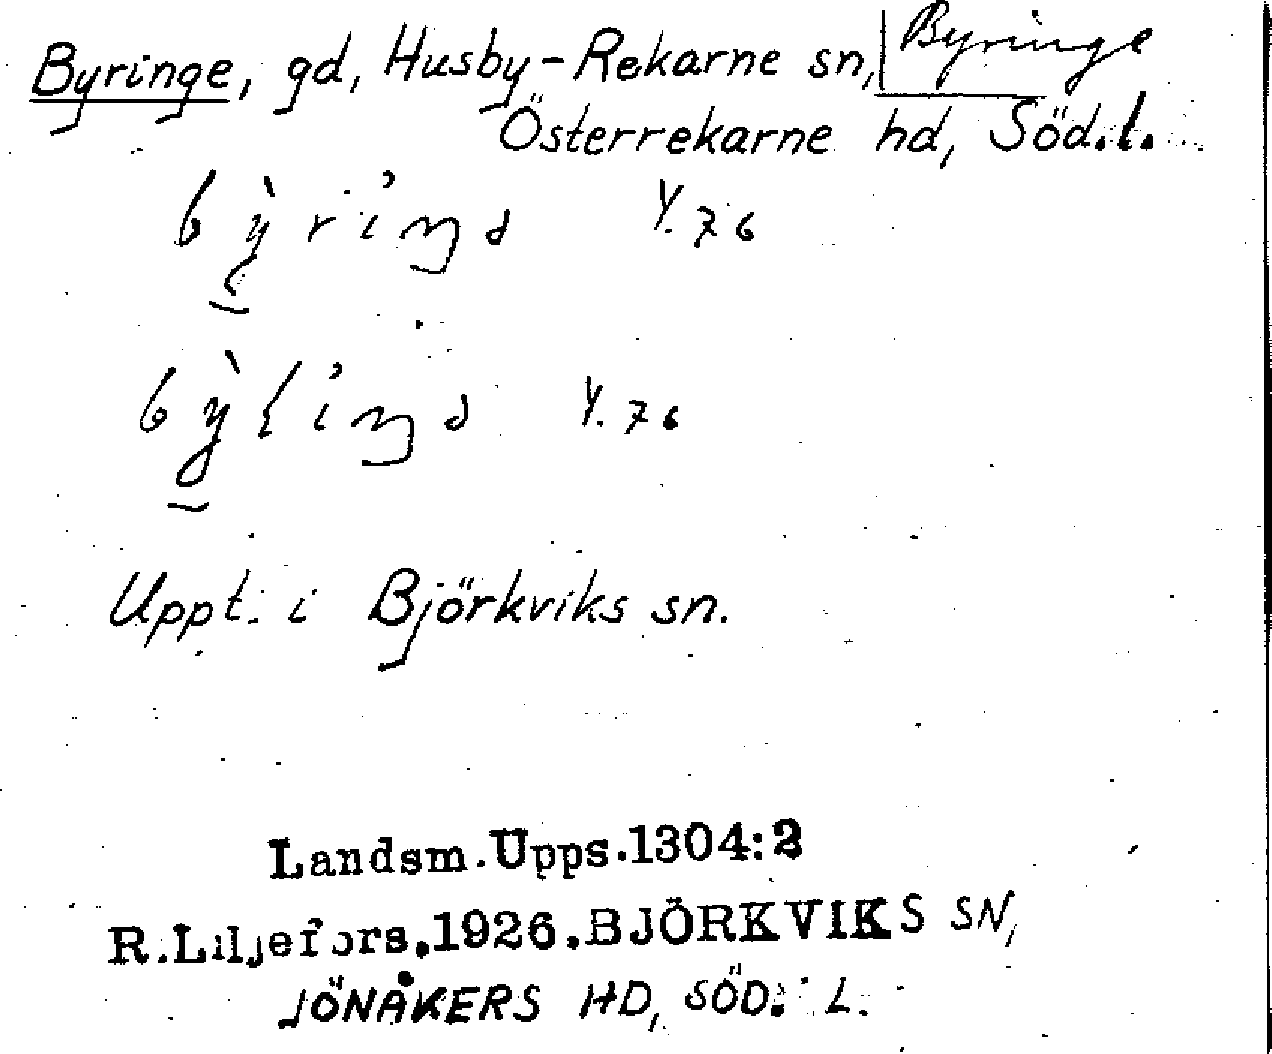 Byringe, gd, Husby-Rekarne sn, Byringe
Österrekarne hd, Söd.l.
Y.76
Y.76
Uppt. i Björkviks sn.
Landsm.Upps.1304:2
R.Liljefors.1926.BJÖRKVIKS SN,
JÖNÅKERS HD, SÖD. L.